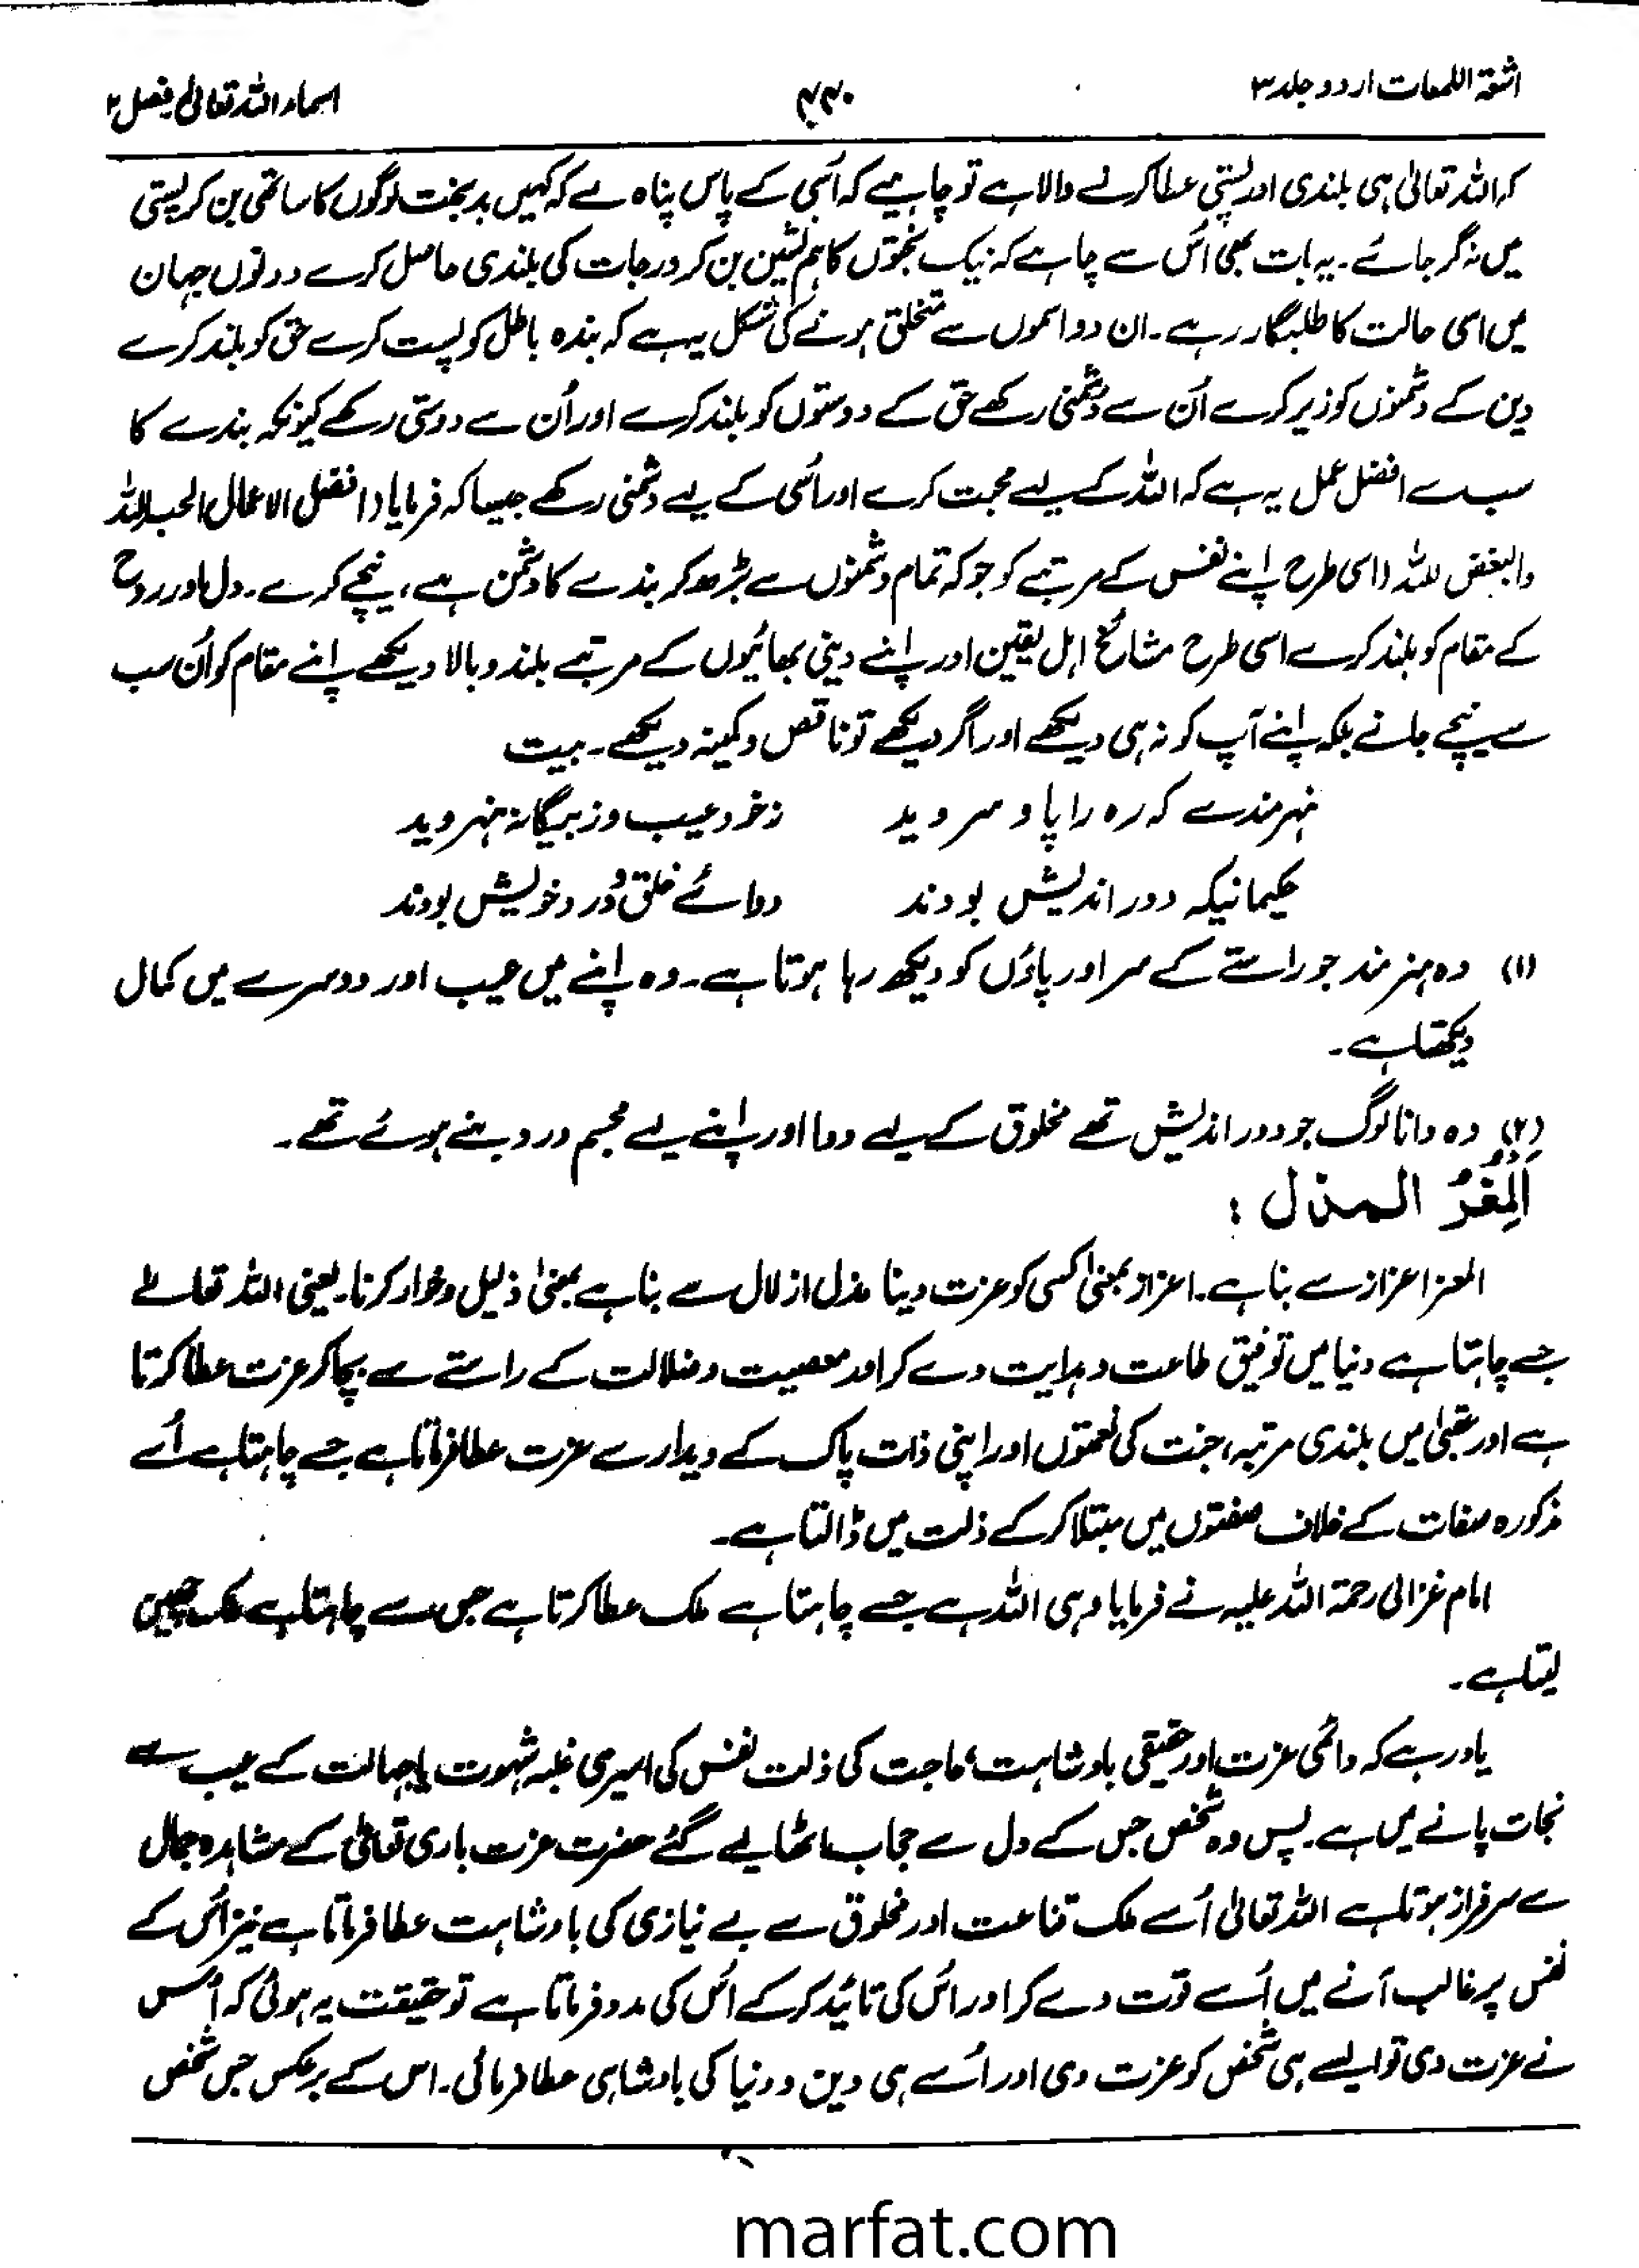 اشعۃ اللمعات اردو جلد ۳
۴۳۰
اسماء اللہ تعالیٰ فصل ۲
کہ اللہ تعالیٰ ہی بلندی اور پستی عطا کرنے والا ہے تو چاہیے کہ اُسی کے پاس پناہ لے کہ کہیں بدبخت لوگوں کا ساتھی بن کر پستی
میں نہ گر جائے۔ یہ بات بھی اُس سے چاہے کہ نیک بختوں کا ہم نشین بن کر درجات کی بلندی حاصل کرے دونوں جہان
میں اسی حالت کا طلبگار رہے۔ ان دو اسموں سے متخلق ہونے کی شکل یہ ہے کہ بندہ باطل کو پست کرے حق کو بلند کرے
دین کے دشمنوں کو زیر کرے اُن سے دشمنی رکھے حق کے دوستوں کو بلند کرے اور اُن سے دوستی رکھے کیونکہ بندے کا
سب سے افضل عمل یہ ہے کہ اللہ کے لیے محبت کرے اور اُسی کے لیے دشمنی رکھے جیسا کہ فرمایا (افضل الاعمال الحب للہ
والبغض للہ) اسی طرح اپنے نفس کے مرتبے کو جو کہ تمام دشمنوں سے بڑھ کر بندے کا دشمن ہے، نیچے کرے۔ دل اور روح
کے مقام کو بلند کرے اسی طرح مشائخ اہل یقین اور اپنے دینی بھائیوں کے مرتبے بلند و بالا دیکھے اپنے مقام کو اُن سب
سے نیچے جانے بلکہ اپنے آپ کو نہ ہی دیکھے اور اگر دیکھے تو ناقص و کمینہ دیکھے۔ بیت
ہنرمندے کہ رہ را پا و سر دید زخود عیب و ز بیگانہ ہنر دید
حکیمانیکہ دور اندیش بودند دوائے خلق و درد خویش بودند
(۱) وہ ہنرمند جو راستے کے سر اور پاؤں کو دیکھ رہا ہوتا ہے۔ وہ اپنے میں عیب اور دوسرے میں کمال
دیکھتا ہے۔
(۲) وہ دانا لوگ جو دور اندیش تھے مخلوق کے لیے دوا اور اپنے لیے مجسم درد بنے ہوئے تھے۔
اَلْمُعِزُّ المذل :
المعز اعزاز سے بنا ہے۔ اعزاز بمعنیٰ کسی کو عزت دینا مذل ازلال سے بنا ہے بمعنیٰ ذلیل و خوار کرنا۔ یعنی اللہ تعالےٰ
جسے چاہتا ہے دنیا میں توفیق طاعت و ہدایت دے کر اور معصیت و ضلالت کے راستے سے بچا کر عزت عطا کرتا
ہے اور عقبیٰ میں بلندی مرتبہ، جنت کی نعمتوں اور اپنی ذات پاک کے دیدار سے عزت عطا فرماتا ہے جسے چاہتا ہے اُسے
مذکورہ صفات کے خلاف صفتوں میں مبتلا کر کے ذلت میں ڈالتا ہے۔
امام غزالی رحمۃ اللہ علیہ نے فرمایا وہی اللہ ہے جسے چاہتا ہے ملک عطا کرتا ہے جس سے چاہتا ہے ملک چھین
لیتا ہے۔
یاد رہے کہ دائمی عزت اور حقیقی بادشاہت، حاجت کی ذلت نفس کی اسیری غلبہ شہوت یا جہالت کے عیب سے
نجات پانے میں ہے۔ پس وہ شخص جس کے دل سے حجاب اٹھا لیے گئے حضرت عزت باری تعالیٰ کے مشاہدہ جمال
سے سرفراز ہوتا ہے اللہ تعالیٰ اُسے ملک قناعت اور مخلوق سے بے نیازی کی بادشاہت عطا فرماتا ہے نیز اُس کے
نفس پر غالب آنے میں اُسے قوت دے کر اور اُس کی تائید کر کے اُس کی مدد فرماتا ہے تو حقیقت یہ ہوئی کہ اُس
نے عزت دی تو ایسے ہی شخص کو عزت دی اور اُسے ہی دین و دنیا کی بادشاہی عطا فرمائی۔ اس کے برعکس جس شخص
marfat.com